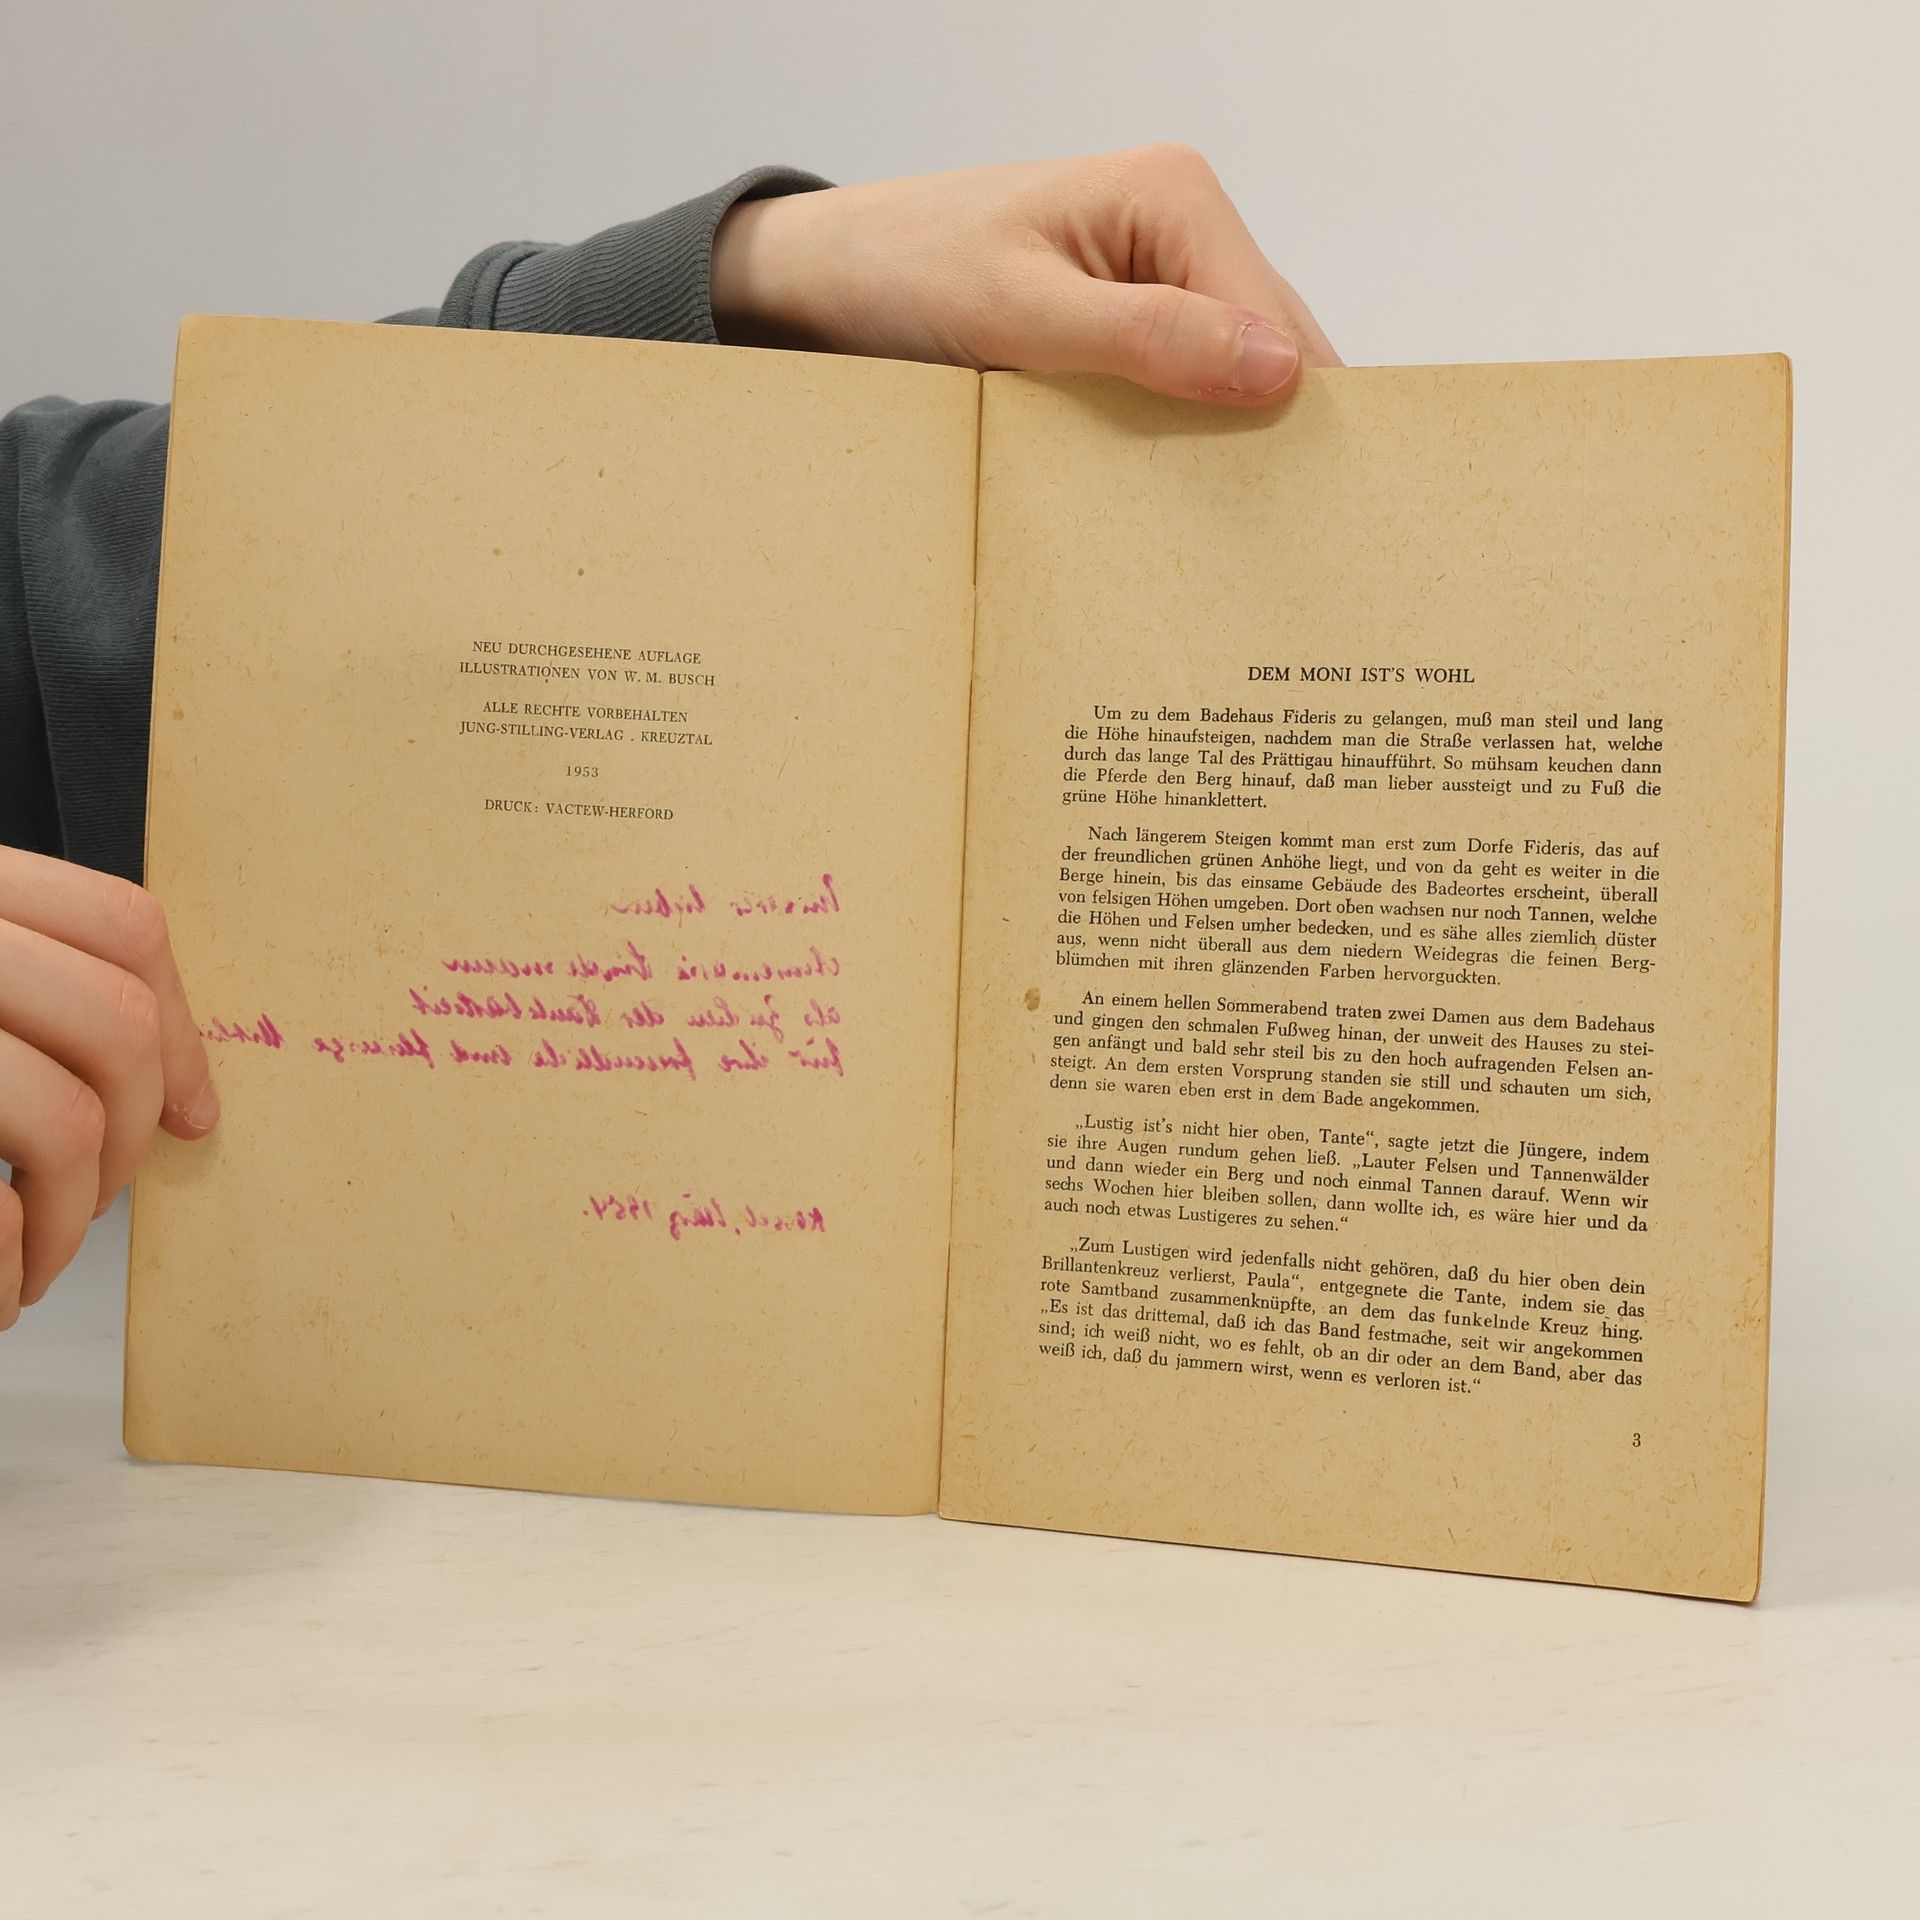 NEU DURCHGESEHENE AUFLAGE
ILLUSTRATIONEN VON W. M. BUSCH
ALLE RECHTE VORBEHALTEN
JUNG-STILLING-VERLAG . KREUZTAL
1953
DRUCK: VACTEW-HERFORD
lieben
als der
für ihre und
März 1954.
DEM MONI IST'S WOHL
Um zu dem Badehaus Fideris zu gelangen, muß man steil und lang
die Höhe hinaufsteigen, nachdem man die Straße verlassen hat, welche
durch das lange Tal des Prättigau hinaufführt. So mühsam keuchen dann
die Pferde den Berg hinauf, daß man lieber aussteigt und zu Fuß die
grüne Höhe hinanklettert.
Nach längerem Steigen kommt man erst zum Dorfe Fideris, das auf
der freundlichen grünen Anhöhe liegt, und von da geht es weiter in die
Berge hinein, bis das einsame Gebäude des Badeortes erscheint, überall
von felsigen Höhen umgeben. Dort oben wachsen nur noch Tannen, welche
die Höhen und Felsen umher bedecken, und es sähe alles ziemlich düster
aus, wenn nicht überall aus dem niedern Weidegras die feinen Berg-
blümchen mit ihren glänzenden Farben hervorguckten.
An einem hellen Sommerabend traten zwei Damen aus dem Badehaus
und gingen den schmalen Fußweg hinan, der unweit des Hauses zu stei-
gen anfängt und bald sehr steil bis zu den hoch aufragenden Felsen an-
steigt. An dem ersten Vorsprung standen sie still und schauten um sich,
denn sie waren eben erst in dem Bade angekommen.
„Lustig ist's nicht hier oben, Tante“, sagte jetzt die Jüngere, indem
sie ihre Augen rundum gehen ließ. „Lauter Felsen und Tannenwälder
und dann wieder ein Berg und noch einmal Tannen darauf. Wenn wir
sechs Wochen hier bleiben sollen, dann wollte ich, es wäre hier und da
auch noch etwas Lustigeres zu sehen.“
„Zum Lustigen wird jedenfalls nicht gehören, daß du hier oben dein
Brillantenkreuz verlierst, Paula“, entgegnete die Tante, indem sie das
rote Samtband zusammenknüpfte, an dem das funkelnde Kreuz hing.
„Es ist das drittemal, daß ich das Band festmache, seit wir angekommen
sind; ich weiß nicht, wo es fehlt, ob an dir oder an dem Band, aber das
weiß ich, daß du jammern wirst, wenn es verloren ist.“
3